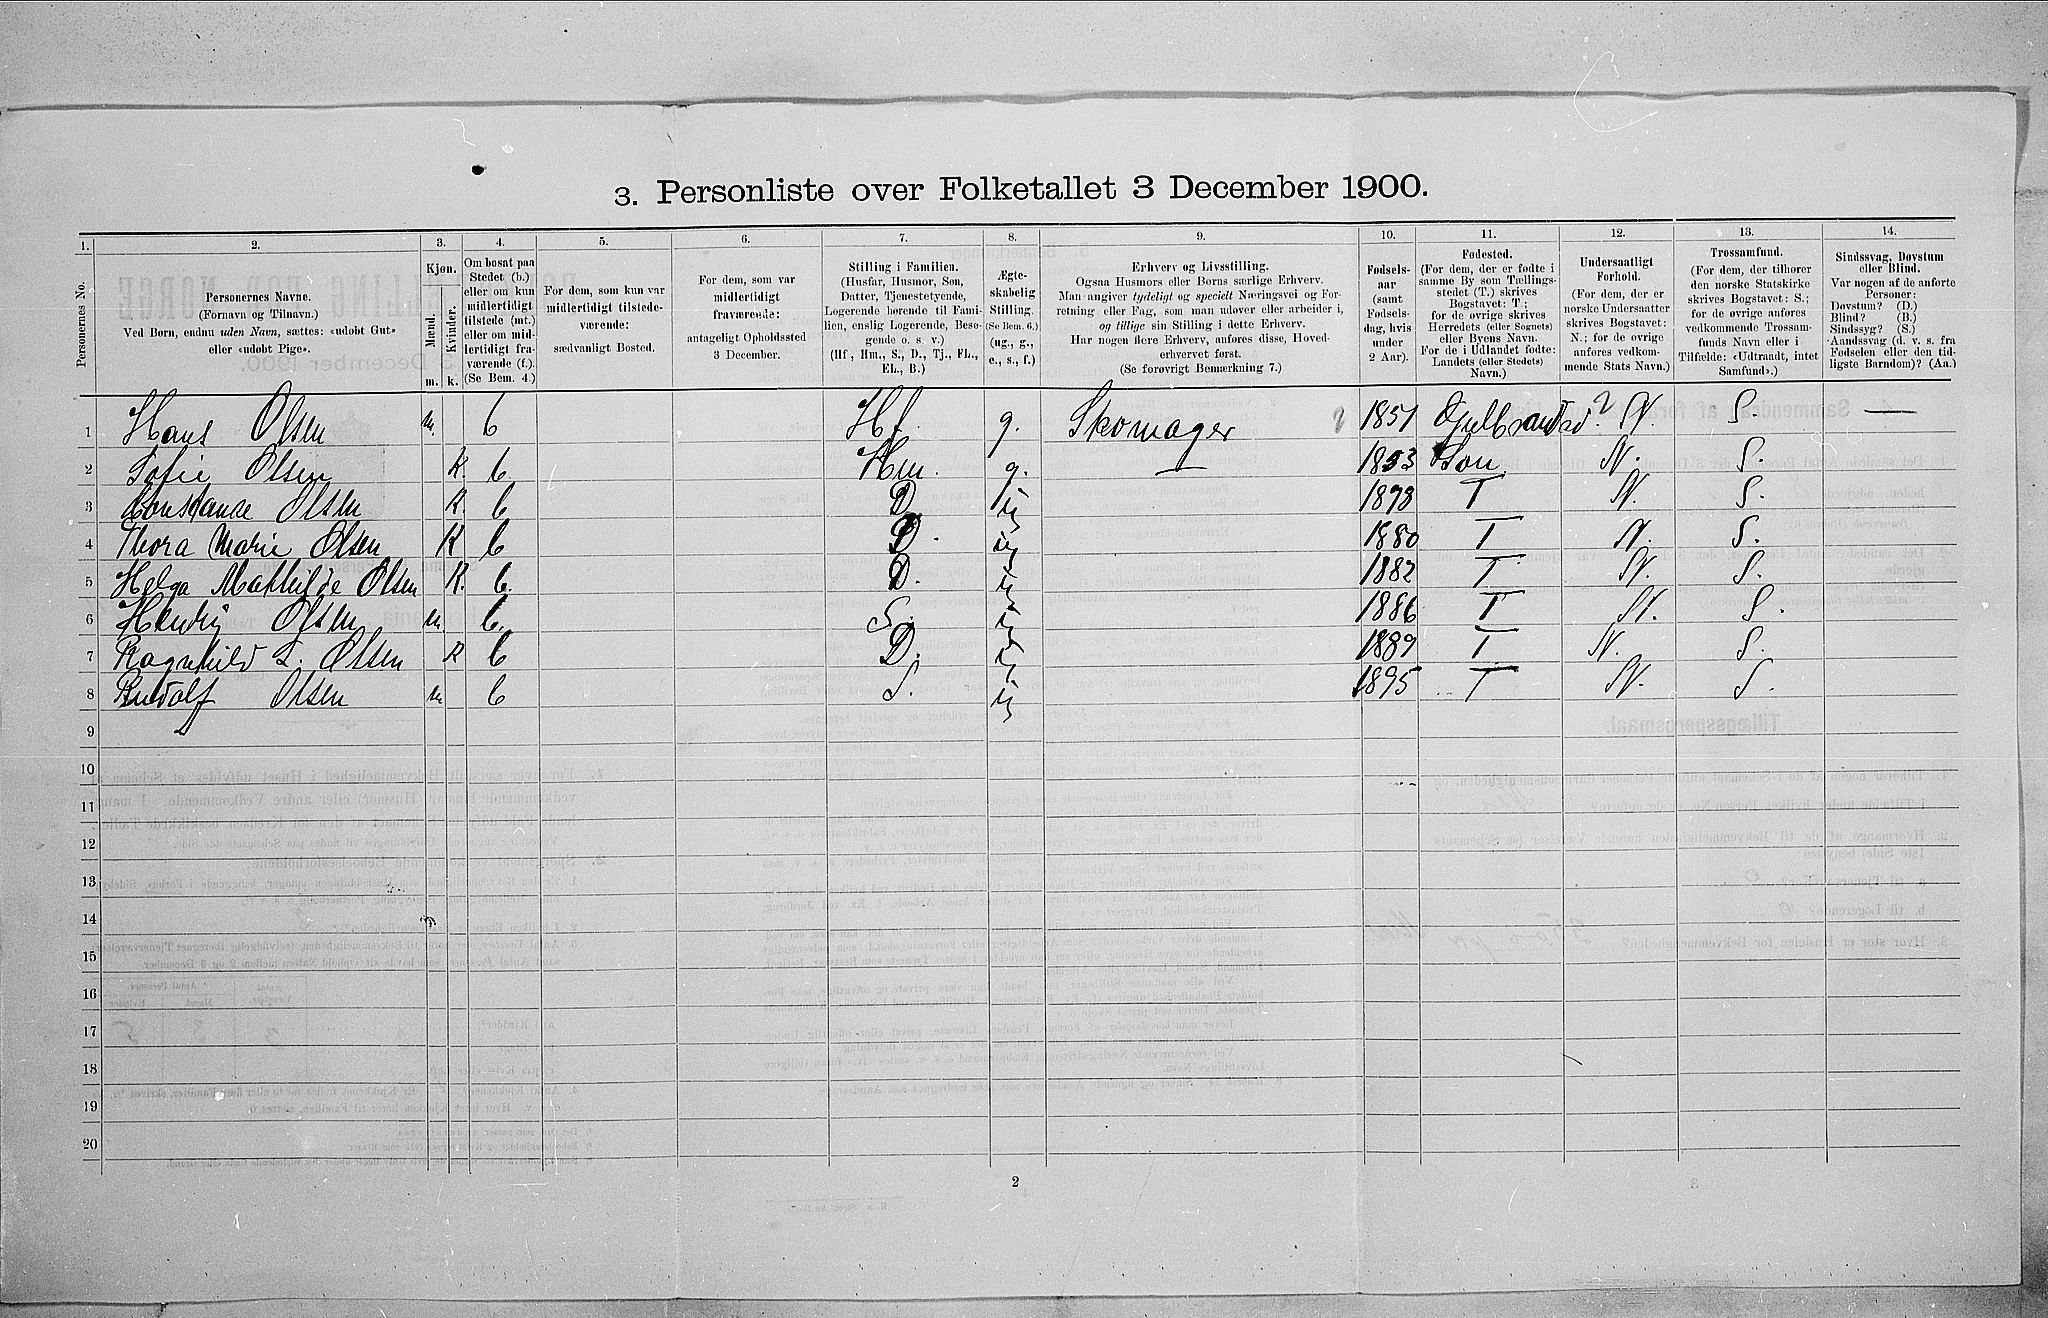 3. Personliste over Folketallet 3 December 1900.
1. 2. 3. 4. 5. 6. 7. 8. 9. 10. 11. 12. 13. 14.
Personernes No.
Personernes Navne.
(Fornavn og Tilnavn.)
Ved Børn, endnu uden Navn, sættes: «udøbt Gut»
eller «udøbt Pige».
Kjøn.
Mænd.
Kvinder.
m. k.
Om bosat paa
Stedet (b.)
eller om kun
midlertidigt
tilstede (mt.)
eller om mid-
lertidigt fra-
værende (f.).
(Se Bem. 4.)
For dem, som kun var
midlertidigt tilstede-
værende:
sædvanligt Bosted.
For dem, som var
midlertidigt
fraværende:
antageligt Opholdssted
3 December.
Stilling i Familien.
(Husfar, Husmor, Søn,
Datter, Tjenestetyende,
Logerende hørende til Fami-
lien, enslig Logerende, Besø-
gende o. s. v.)
(Hf, Hm., S., D., Tj., FL.,
EL., B.)
Ægte-
skabelig
Stilling.
(Se Bem. 6.)
(ug., g.,
e., s., f.)
Erhverv og Livsstilling.
Ogsaa Husmors eller Børns særlige Erhverv.
Man angiver tydeligt og specielt Næringsvei og For-
retning eller Fag, som man udøver eller arbeider i,
og tillige sin Stilling i dette Erhverv.
Har nogen flere Erhverv, anføres disse, Hoved-
erhvervet først.
(Se forøvrigt Bemærkning 7.)
Fødsels-
aar
(samt
Fødsels-
dag, hvis
under
2 Aar).
Fødested.
(For dem, der er fødte i
samme By som Tællings-
stedet (T.) skrives
Bogstavet: T;
for de øvrige skrives
Herredets (eller Sognets)
eller Byens Navn.
For de i Udlandet fødte:
Landets (eller Stedets)
Navn.)
Undersaatligt
Forhold.
(For dem, der er
norske Undersaatter
skrives Bogstavet:
N.; for de øvrige
anføres vedkom-
mende Stats Navn.)
Trossamfund.
(For dem, der tilhører
den norske Statskirke
skrives Bogstavet: S.;
for de øvrige anføres
vedkommende Trossam-
funds Navn eller i
Tilfælde: «Udtraadt, intet
Samfund».)
Sindssvag, Døvstum
eller Blind.
Var nogen af de anførte
Personer:
Døvstum? (D.)
Blind? (B.)
Sindssyg? (S.)
Aandssvag (d. v. s. fra
Fødselen eller den tid-
ligste Barndom)? (Aa.)
1 Hans Olsen m. b Hf. g. Skomager 1851 ? N. S. —
2 Sofie Olsen K. b Hm. g. — 1853 Son N. S.
3 Constance Olsen K. b D ug 1878 T N. S.
4 Thora Marie Olsen K b D. ug 1880 T N. S.
5 Helga Mathilde Olsen K. b. D. ug 1882 T N. S.
6 Henry Olsen m. b. S. ug 1886 T N. S.
7 Ragnhild L. Olsen K b D. ug 1889 T N. S.
8 Rudolf Olsen m b S. ug 1895 T N. S.
9
10
11
12
13
14
15
16
17
18
19
20
2